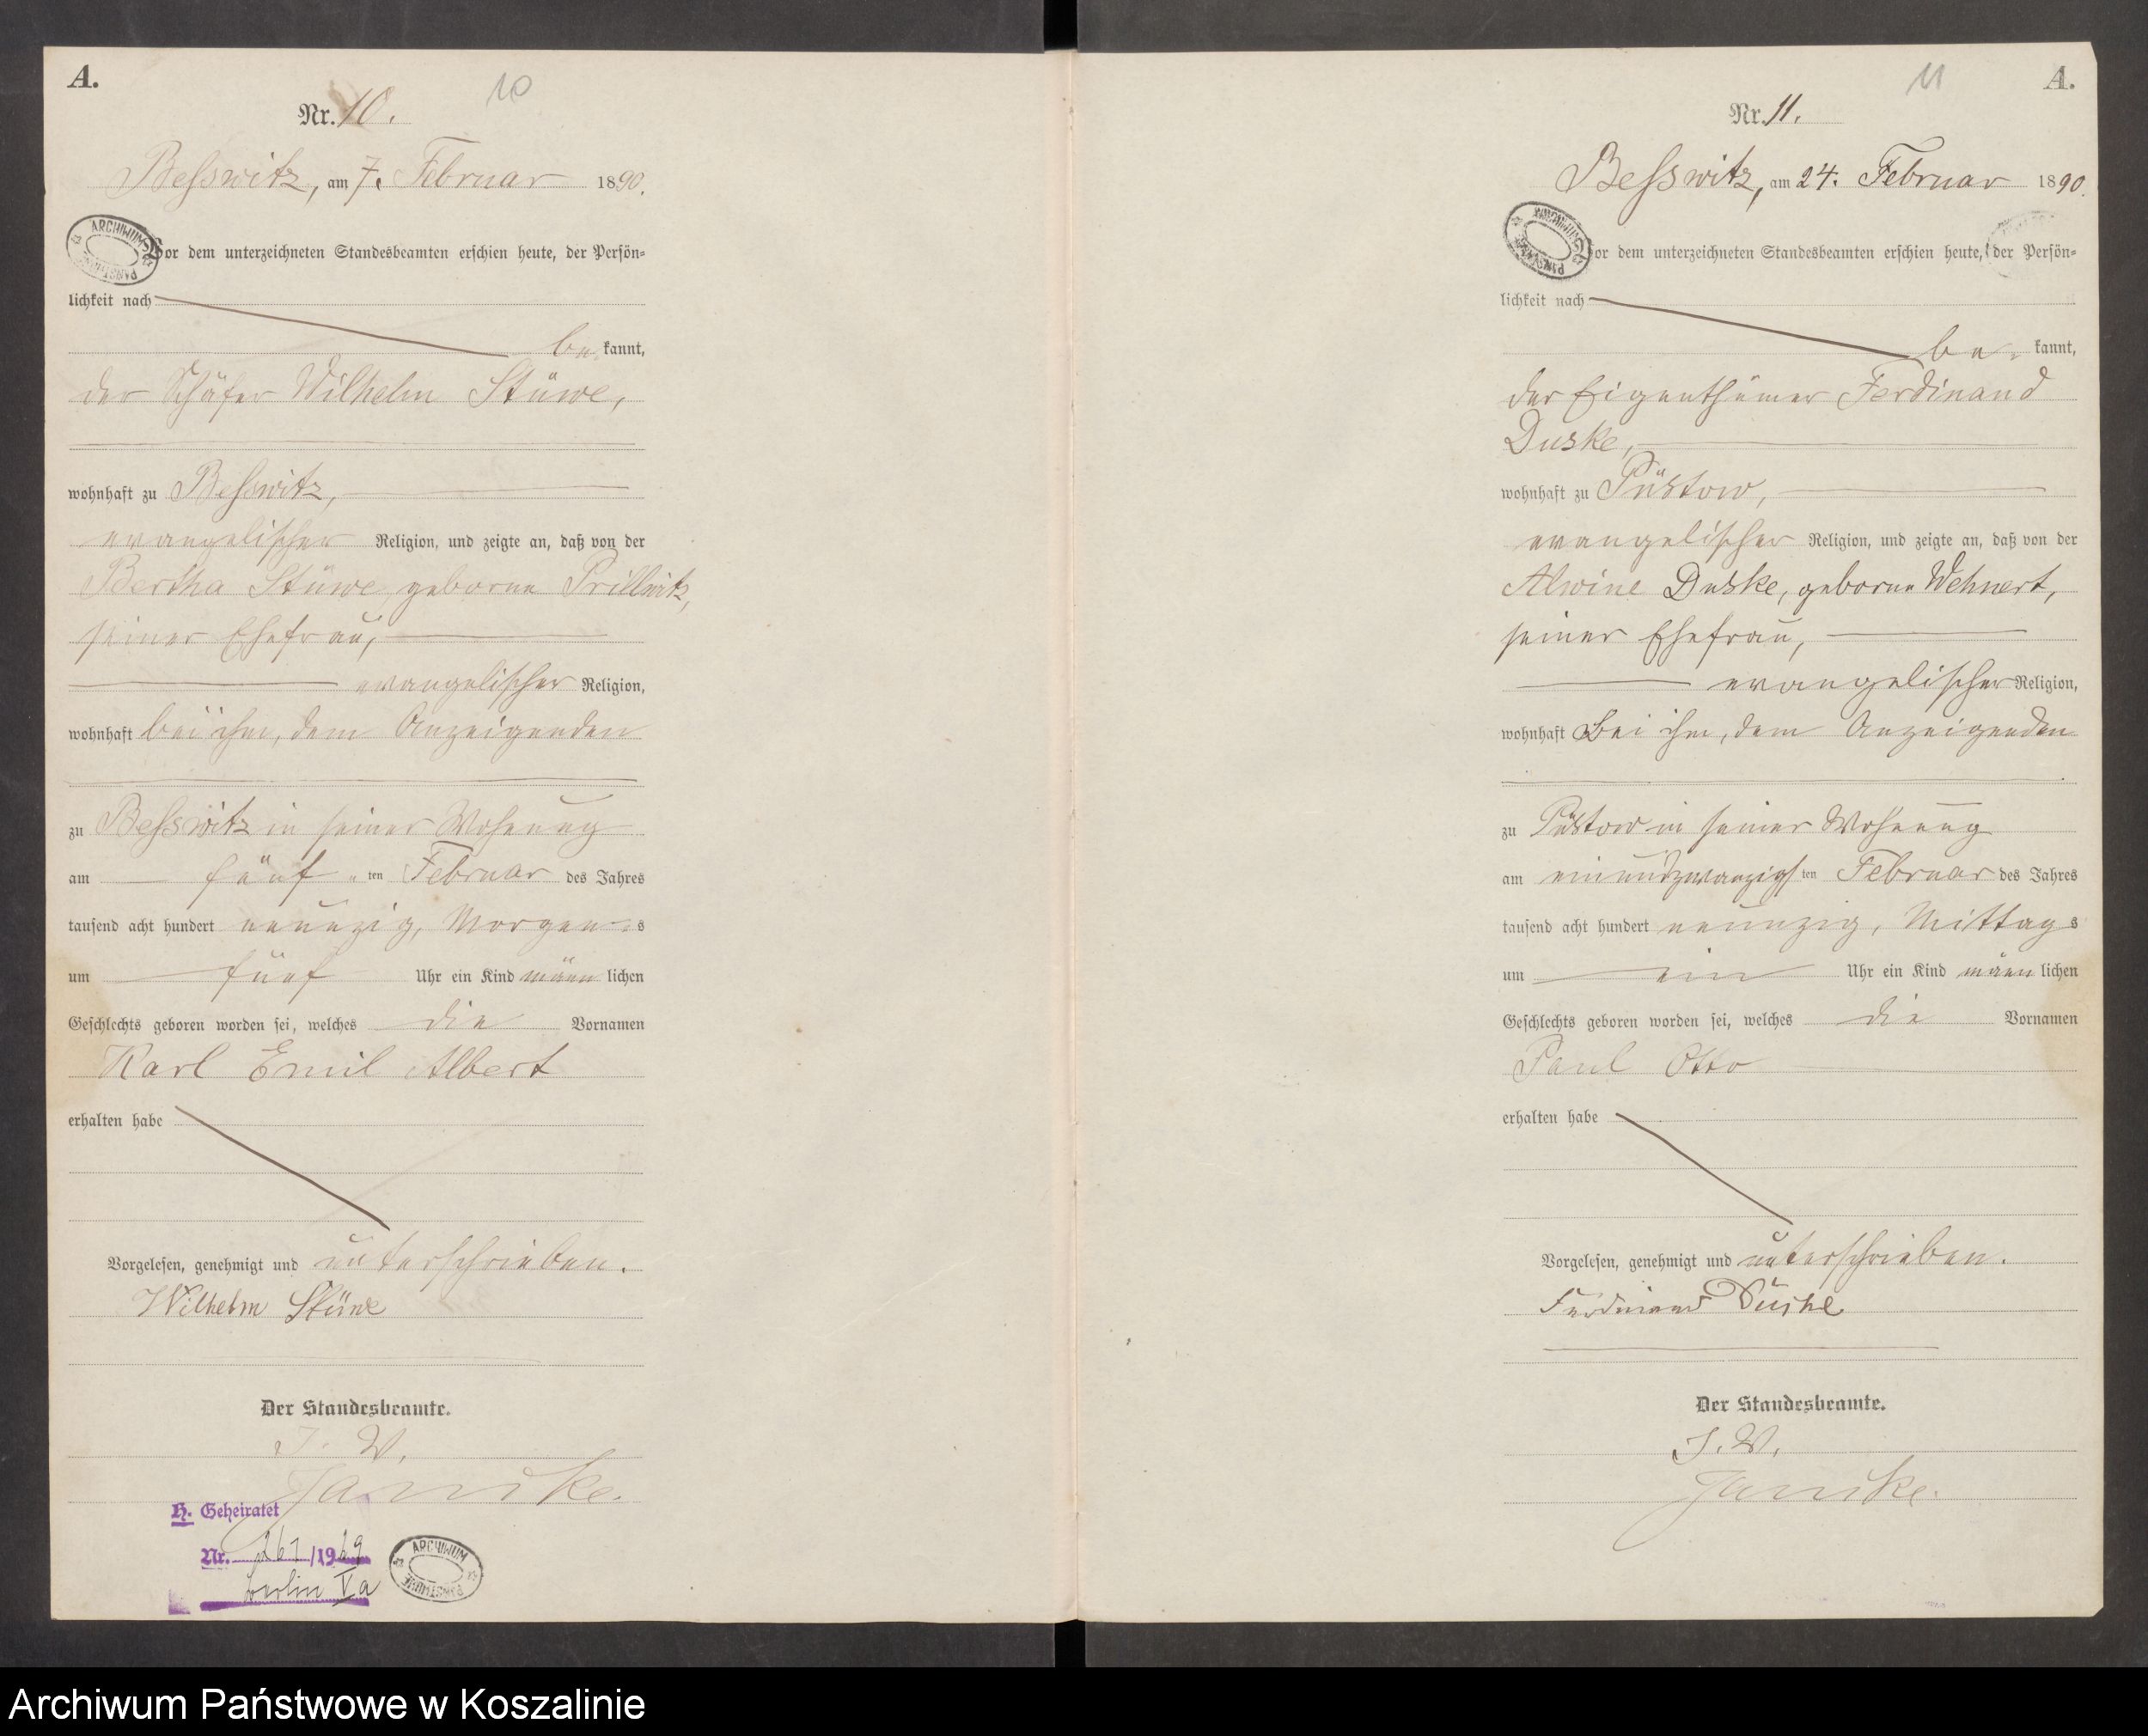 A.
10
Nr. 10.
Besswitz, am 7. Februar 1890.
ARCHIWUM PAŃSTWOWE
Vor dem unterzeichneten Standesbeamten erschien heute, der Persön-
lichkeit nach
be kannt,
der Schäfer Wilhelm Stüwe,
wohnhaft zu Besswitz,
evangelischer Religion, und zeigte an, daß von der
Bertha Stüwe geborne Prillwitz,
seiner Ehefrau,
evangelischer Religion,
wohnhaft bei ihm, dem Anzeigenden
zu Besswitz in seiner Wohnung
am fünf ten Februar des Jahres
tausend acht hundert neunzig, Morgens
um fünf Uhr ein Kind männ lichen
Geschlechts geboren worden sei, welches die Vornamen
Karl Emil Albert
erhalten habe
Vorgelesen, genehmigt und unterschrieben.
Wilhelm Stüwe
Der Standesbeamte.
J. V.
Janicke.
H. Geheiratet
Nr. 267/1929
Berlin Va
ARCHIWUM PAŃSTWOWE
11
A.
Nr. 11.
Besswitz, am 24. Februar 1890.
ARCHIWUM PAŃSTWOWE
Vor dem unterzeichneten Standesbeamten erschien heute, der Persön-
lichkeit nach
be kannt,
der Eigenthümer Ferdinand
Duske,
wohnhaft zu Püstow,
evangelischer Religion, und zeigte an, daß von der
Alwine Duske, geborne Wehnert,
seiner Ehefrau,
evangelischer Religion,
wohnhaft bei ihm, dem Anzeigenden
zu Püstow in seiner Wohnung
am einundzwanzigsten Februar des Jahres
tausend acht hundert neunzig, Mittags
um ein Uhr ein Kind männ lichen
Geschlechts geboren worden sei, welches die Vornamen
Paul Otto
erhalten habe
Vorgelesen, genehmigt und unterschrieben.
Ferdinand Duske
Der Standesbeamte.
J. V.
Janicke.
Archiwum Państwowe w Koszalinie